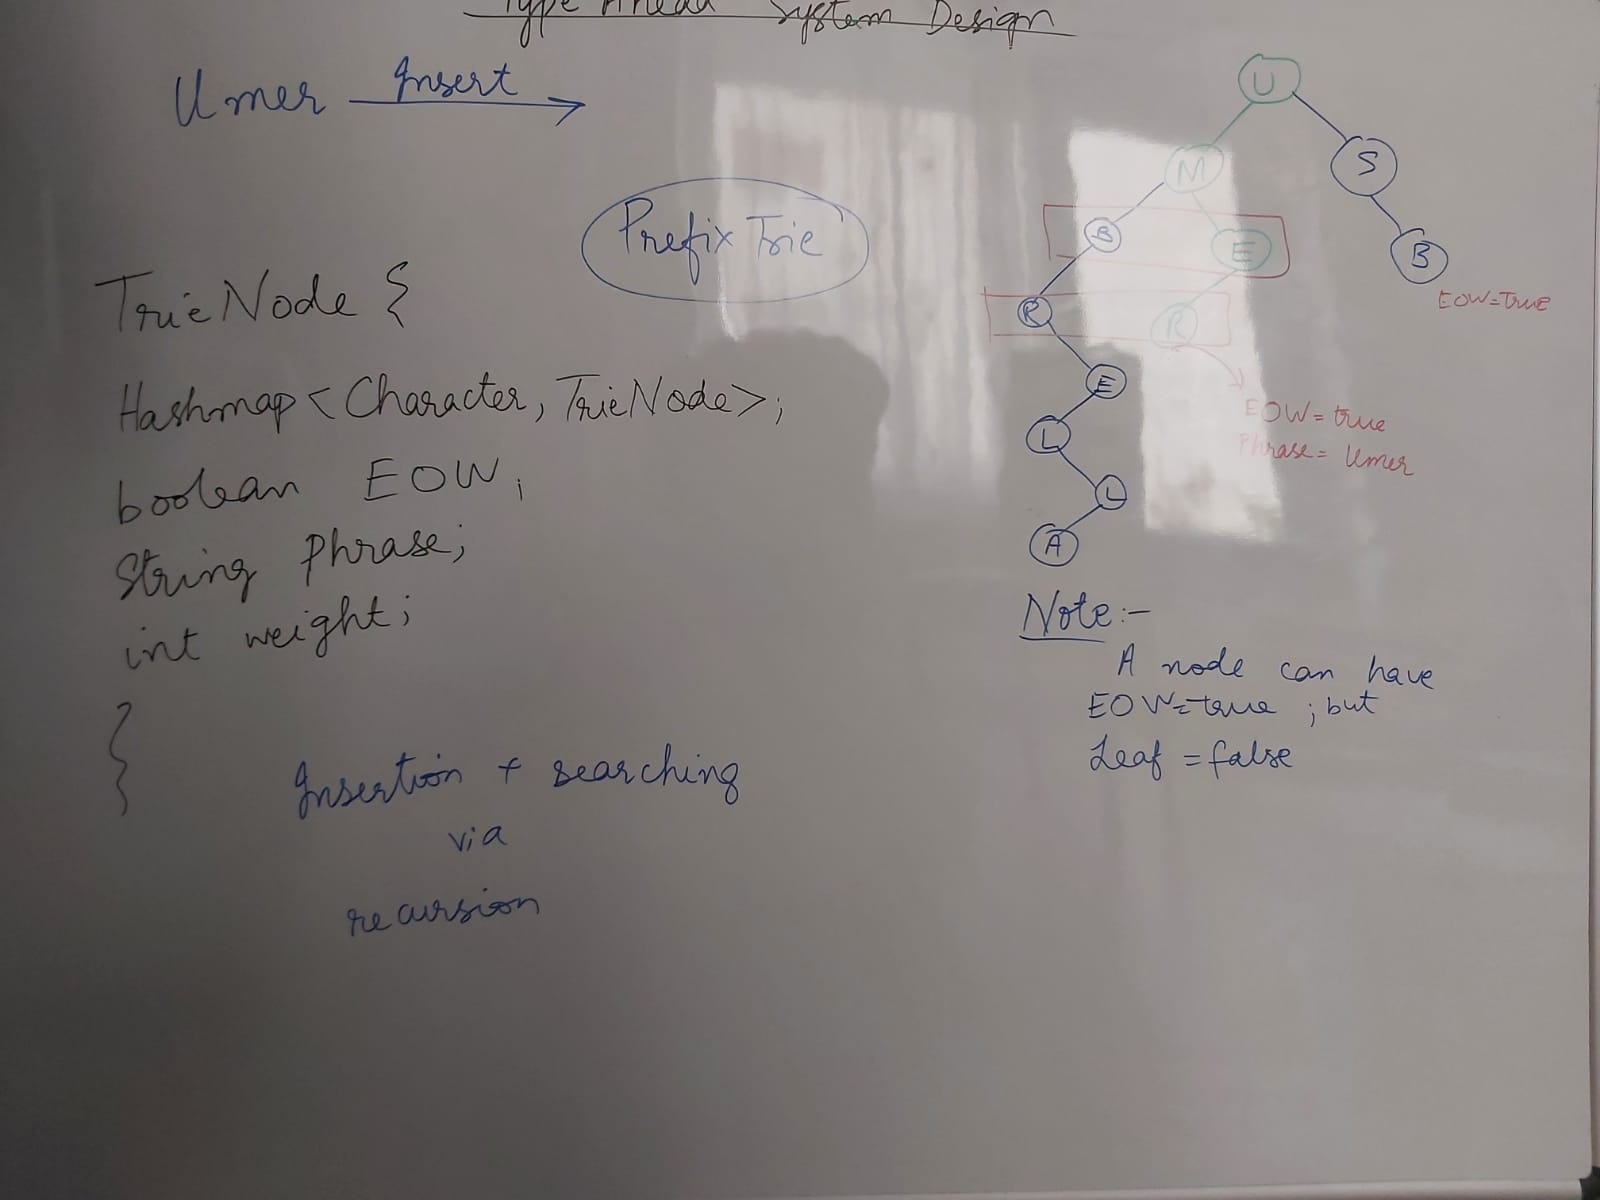 Type Ahead System Design
Umer Insert
Prefix Trie
TrieNode {
Hashmap <Character, TrieNode>;
boolean EOW;
String Phrase;
int weight;
}
Insertion + searching
via
recursion
U
M
S
B
E
B
EOW=True
R
R
E
EOW = true
Phrase = Umer
L
L
A
Note:-
A node can have
EOW=true ; but
Leaf = false